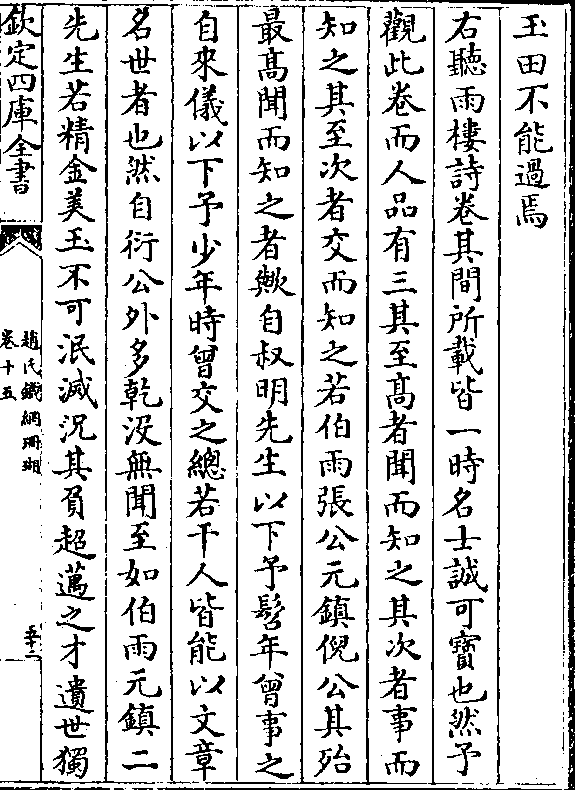 玉田不能過焉
右聽雨樓詩卷其間所載皆一時名士誠可寶也然予
觀此卷而人品有三其至高者聞而知之其次者事而
知之其至次者交而知之若伯雨張公元鎮倪公其殆
最高聞而知之者歟自叔明先生以下予髫年曾事之
自來儀以下予少年時曾交之總若干人皆能以文章
名世者也然自衍公外多乾没無聞至如伯雨元鎮二
先生若精金美玉不可泯滅況其負超邁之才遺世獨
欽定四庫全書
趙氏鐵網珊瑚
卷十五